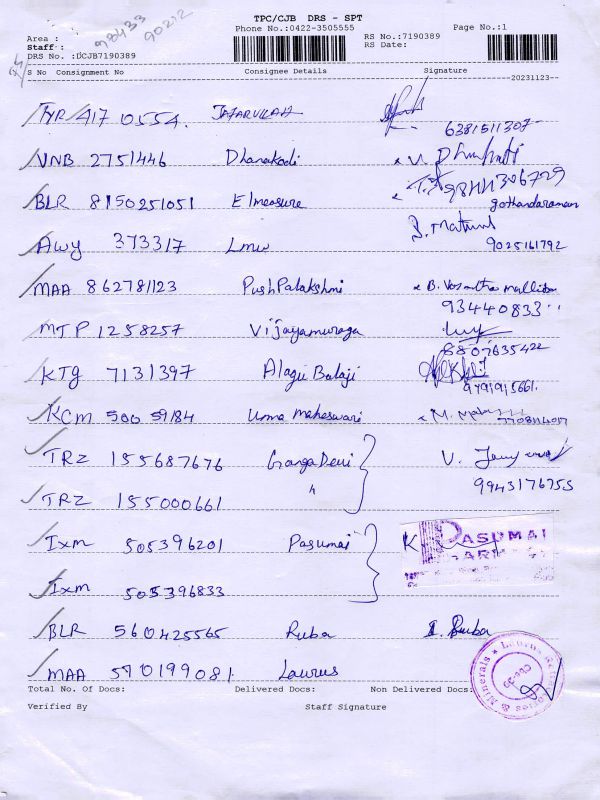 TPC/CJB DRS - SPT
Phone No.:0422-3505555
Page No.:1
98433
90212
Area :
Staff :
DRS No. :DCJB7190389
RS No.:7190389
RS Date:
S No Consignment No Consignee Details Signature
20231123
TYR 417 10554. JAFARULLAH
6381511307
VNB 2751446 Dhanakodi
BLR 8150251051 Elmeasure
gothandaraman
Awy 373317 Lmw
9025161792
MAA 862781123 PushPalakshmi B. Vasantha mallika
93440833
MTP 1258257 Vijayamuraga
8807635422
KTG 7131397 Alagu Balaji
9791915661.
KCM 500 59184 Uma maheswari
TRZ 155687676 Ganga Devi V.
TRZ 155000661 "
9943176755
Ixm 505396201 Pasumai K
PASUMAI
Ixm 505396833
BLR 560425565 Ruba I. Ruba
MAA 590199081. Laurus
Total No. Of Docs: Delivered Docs: Non Delivered Docs:
Verified By Staff Signature